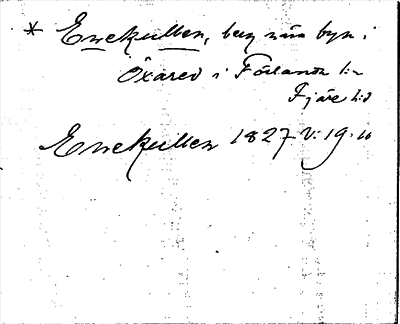 * Enekullen, berg nära byn i
Öxared i Förlanda s:n
Fjäre h:d
Enekullen 1827 V: 19. 11